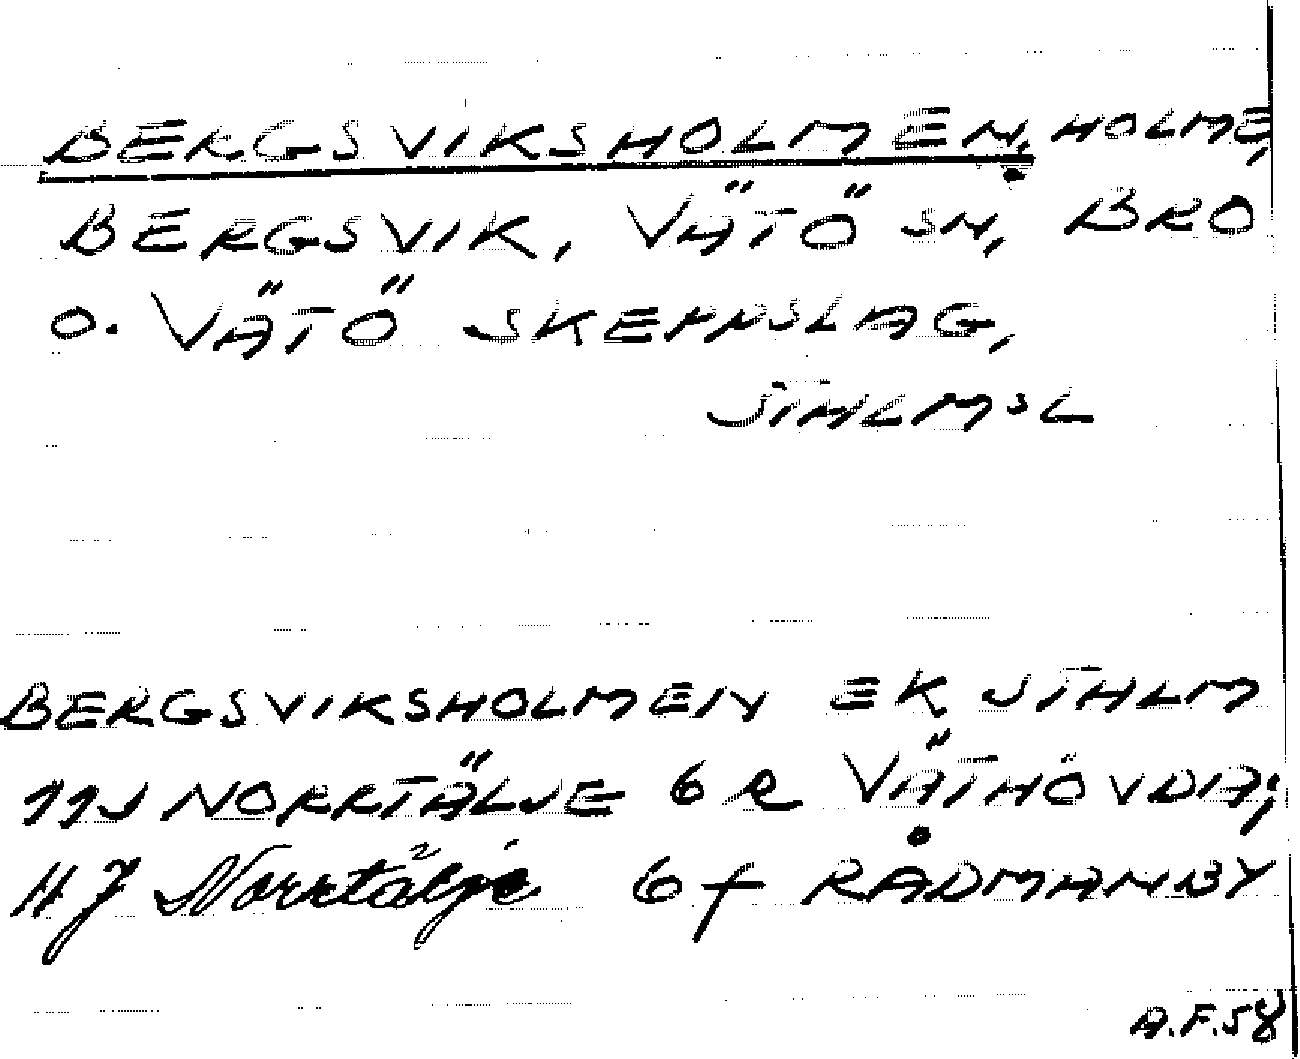 BERGSVIKSHOLMEN, HOLME,
BERGSVIK, VÄTÖ SN, BRO
O. VÄTÖ SKEPPSLAG,
STHLMSL
BERGSVIKSHOLMEN EK STHLM
11J NORRTÄLJE 6 e VÄTHÖVDA;
11 J Norrtälje 6 f RÅDMANBY
A.F.58